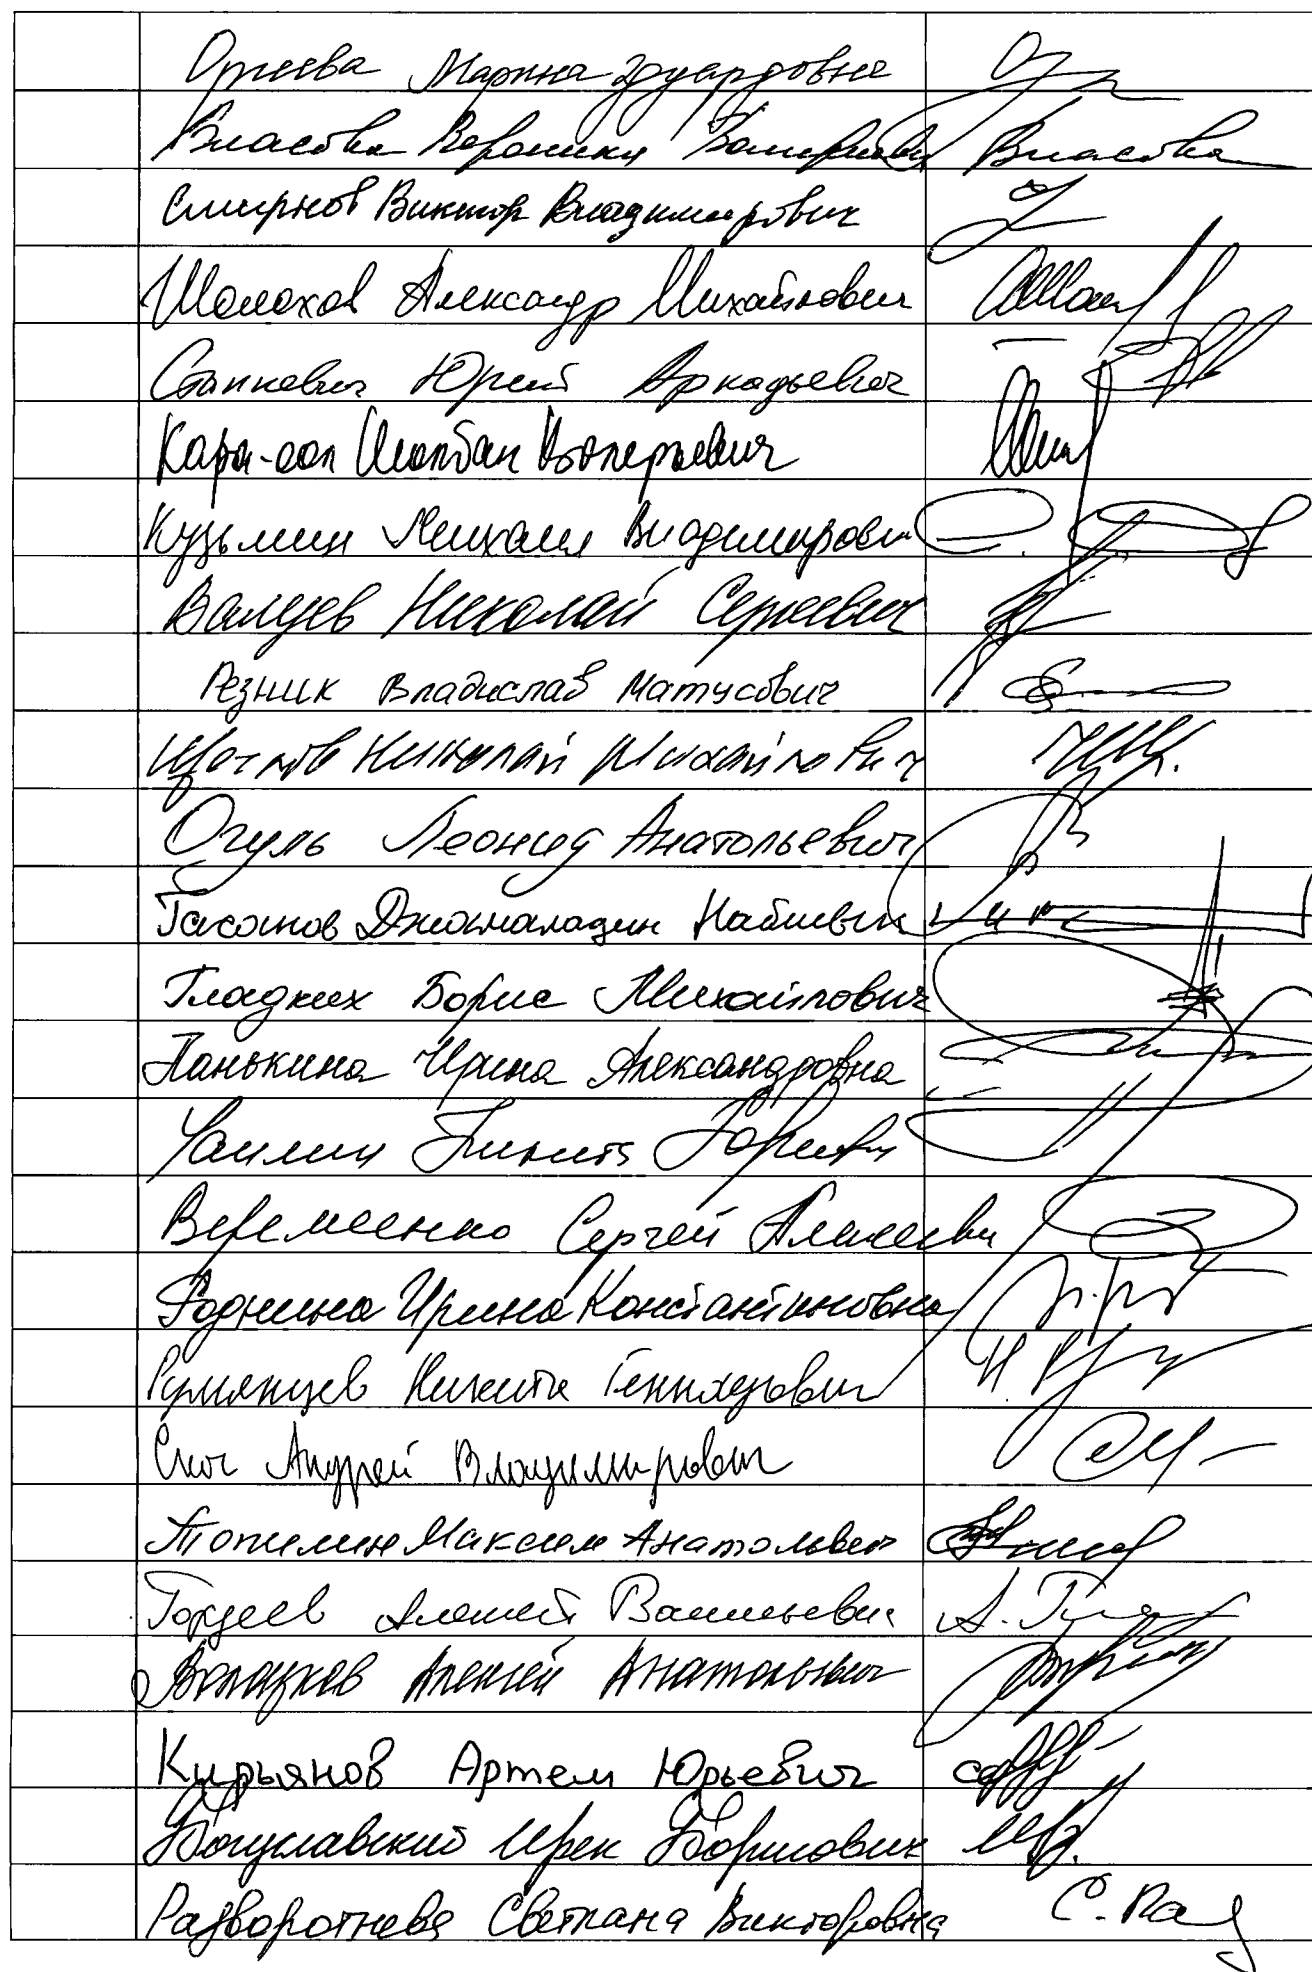 Оргеева Марина Эдуардовна
Власова Вероника Валерьевна Власова
Смирнов Виктор Владимирович
Шолохов Александр Михайлович
Станкевич Юрий Аркадьевич
Кара-оол Шолбан Валерьевич
Кузьмин Михаил Владимирович
Валуев Николай Сергеевич
Резник Владислав Матусович
Щеглов Николай Михайлович
Огуль Леонид Анатольевич
Гасанов Джамаладин Набиевич
Гладких Борис Михайлович
Панькина Ирина Александровна
Чаплин Никита Юрьевич
Веремеенко Сергей Алексеевич
Роднина Ирина Константиновна
Румянцев Никита Геннадьевич
Скоч Андрей Владимирович
Топилин Максим Анатольевич
Гордеев Алексей Васильевич
Волоцков Алексей Анатольевич
Кирьянов Артем Юрьевич
Богуславский Ирек Борисович
Разворотнева Светлана Викторовна С. Раз